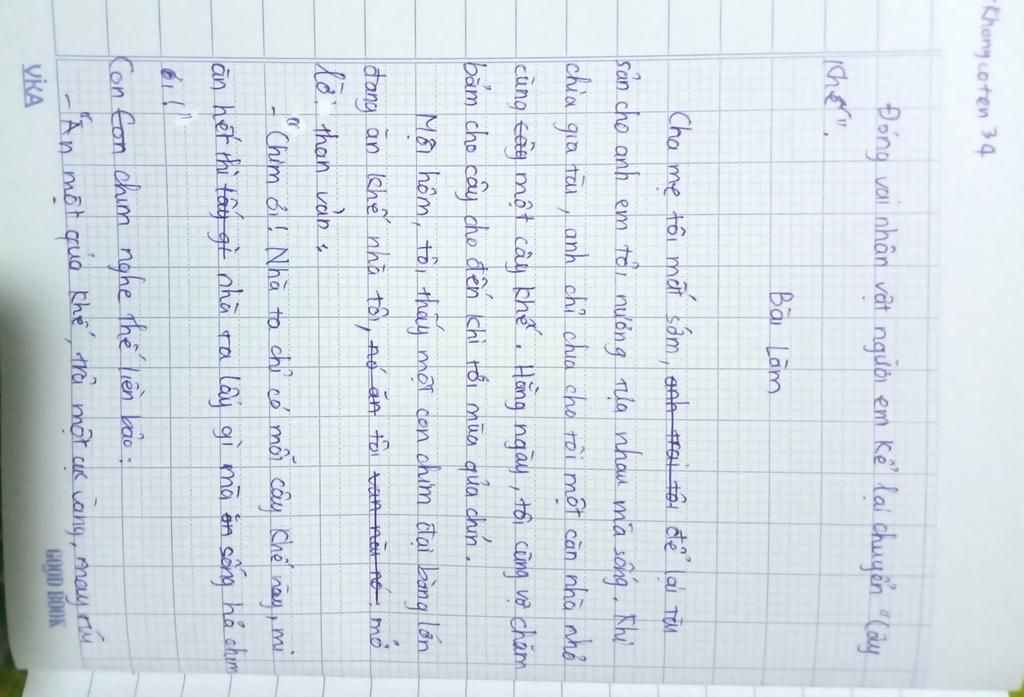 "Khongcoten 34
Đóng vai nhân vật người em kể lại chuyển "Cây
khế".
Bài Làm
Cha mẹ tôi mất sớm, anh trai tôi để lại tài
sản cho anh em tôi nương tựa nhau mà sống. Khi
chia gia tài, anh chỉ chia cho tôi một căn nhà nhỏ
cùng cây một cây khế. Hằng ngày, tôi cùng vợ chăm
bẳm cho cây cho đến khi tới mùa quả chín.
Một hôm, tôi thấy một con chim đại bàng lớn
đang ăn khế nhà tôi, nó ăn tôi van nài nó mở
lời than vãn:
- "Chim ơi! Nhà ta chỉ có mỗi cây khế này, mi
ăn hết thì lấy gì nhà ta lấy gì mà ăn sống hả chim
ơi!"
Con Con chim nghe thế liền bảo:
- "Ăn một quả khế, trả một cục vàng, may túi
VIKA
GOOD BOOK